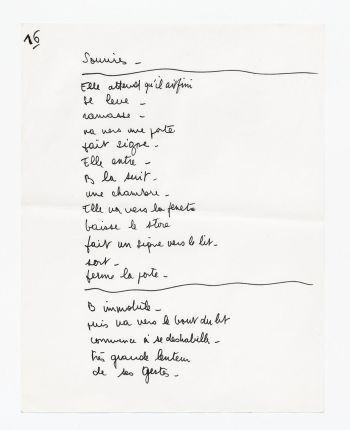 16
Sourires -
Elle attend qu'il ait fini
se lève -
ramasse -
va vers une porte
fait signe -
Elle entre -
B la suit -
une chambre -
Elle va vers la fenêtre
baisse le store
fait un signe vers le lit -
sort -
ferme la porte -
B immobile -
puis va vers le bout du lit
commence à se déshabiller -
très grande lenteur
de ses gestes -